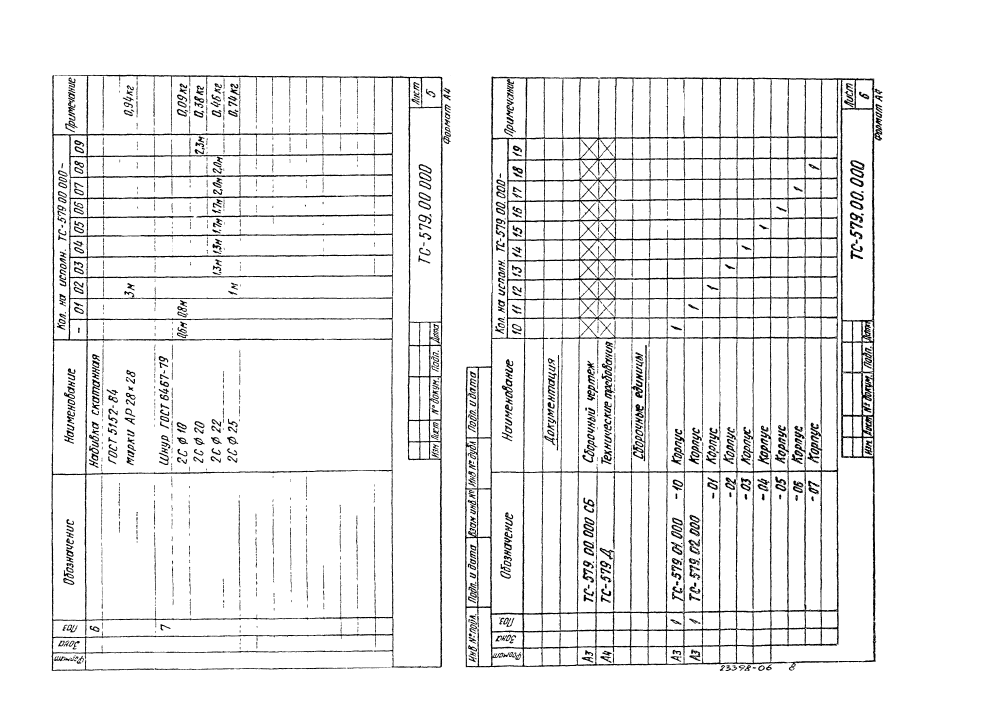 Формат Зона Поз Обозначение Наименование Кол. на исполн. ТС-579 00 000 – Примечание
– 01 02 03 04 05 06 07 08 09
6 Набивка скатанная
ГОСТ 5152-84
марки АР 28×28 3м 0,94кг
7 Шнур ГОСТ 6467-79
2С ф 18 0,6м 0,8м 0,09кг
2С ф 20 2,3м 0,38кг
2С ф 22 1,3м 1,3м 1,7м 1,7м 2,0м 2,0м 0,46кг
2С ф 25 1м 0,74кг
Изм Лист № докум. Подп. Дата
ТС-579.00 000
Лист
5
Формат А4
Инв № подл. Подп. и дата Взам инв № Инв № дубл Подп. и дата
Формат Зона Поз Обозначение Наименование Кол. на исполн. ТС-579 00.000 – Примечание
10 11 12 13 14 15 16 17 18 19
Документация
А3 ТС-579. 00. 000 СБ Сборочный чертеж
А4 ТС-579 Д Технические требования
Сборочные единицы
А3 1 ТС-579. 01. 000 -10 Корпус 1
А3 1 ТС-579. 02. 000 Корпус 1
-01 Корпус 1
-02 Корпус 1
-03 Корпус 1
-04 Корпус 1
-05 Корпус 1
-06 Корпус 1
-07 Корпус 1
Изм Лист № докум. Подп. Дата
ТС-579. 00. 000
Лист
6
Формат А4
23398-06 8